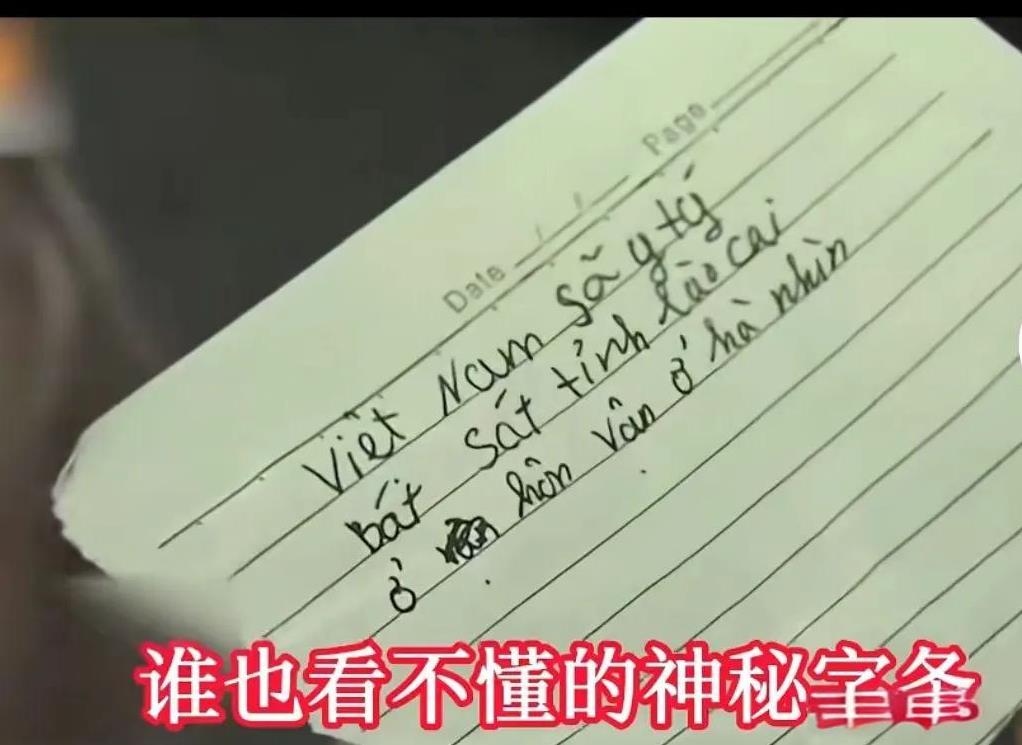 Page
Date / /
Việt Nam sã y tý
bát sát tỉnh lào cai
ở hôn vân ở hà nhìn
谁也看不懂的神秘字条